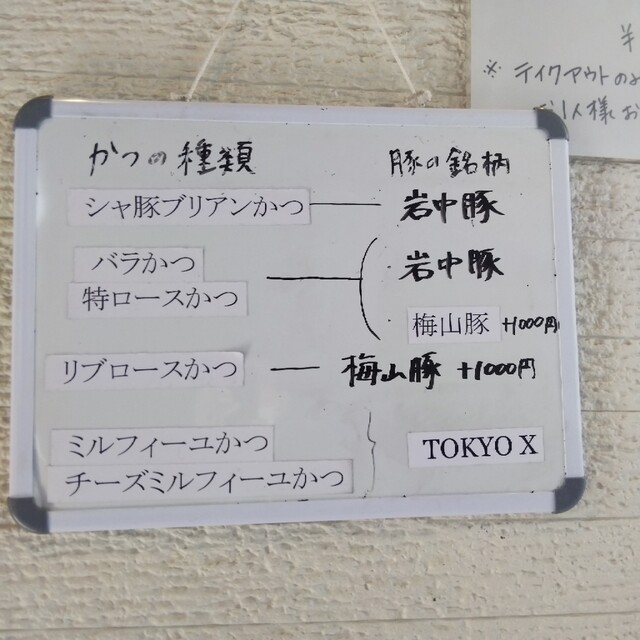 ¥
※ テイクアウトのみ
かつの種類 豚の銘柄
シャ豚ブリアンかつ 岩中豚
バラかつ 岩中豚
特ロースかつ
梅山豚 +1000円
リブロースかつ 梅山豚 +1000円
ミルフィーユかつ
チーズミルフィーユかつ
TOKYO X